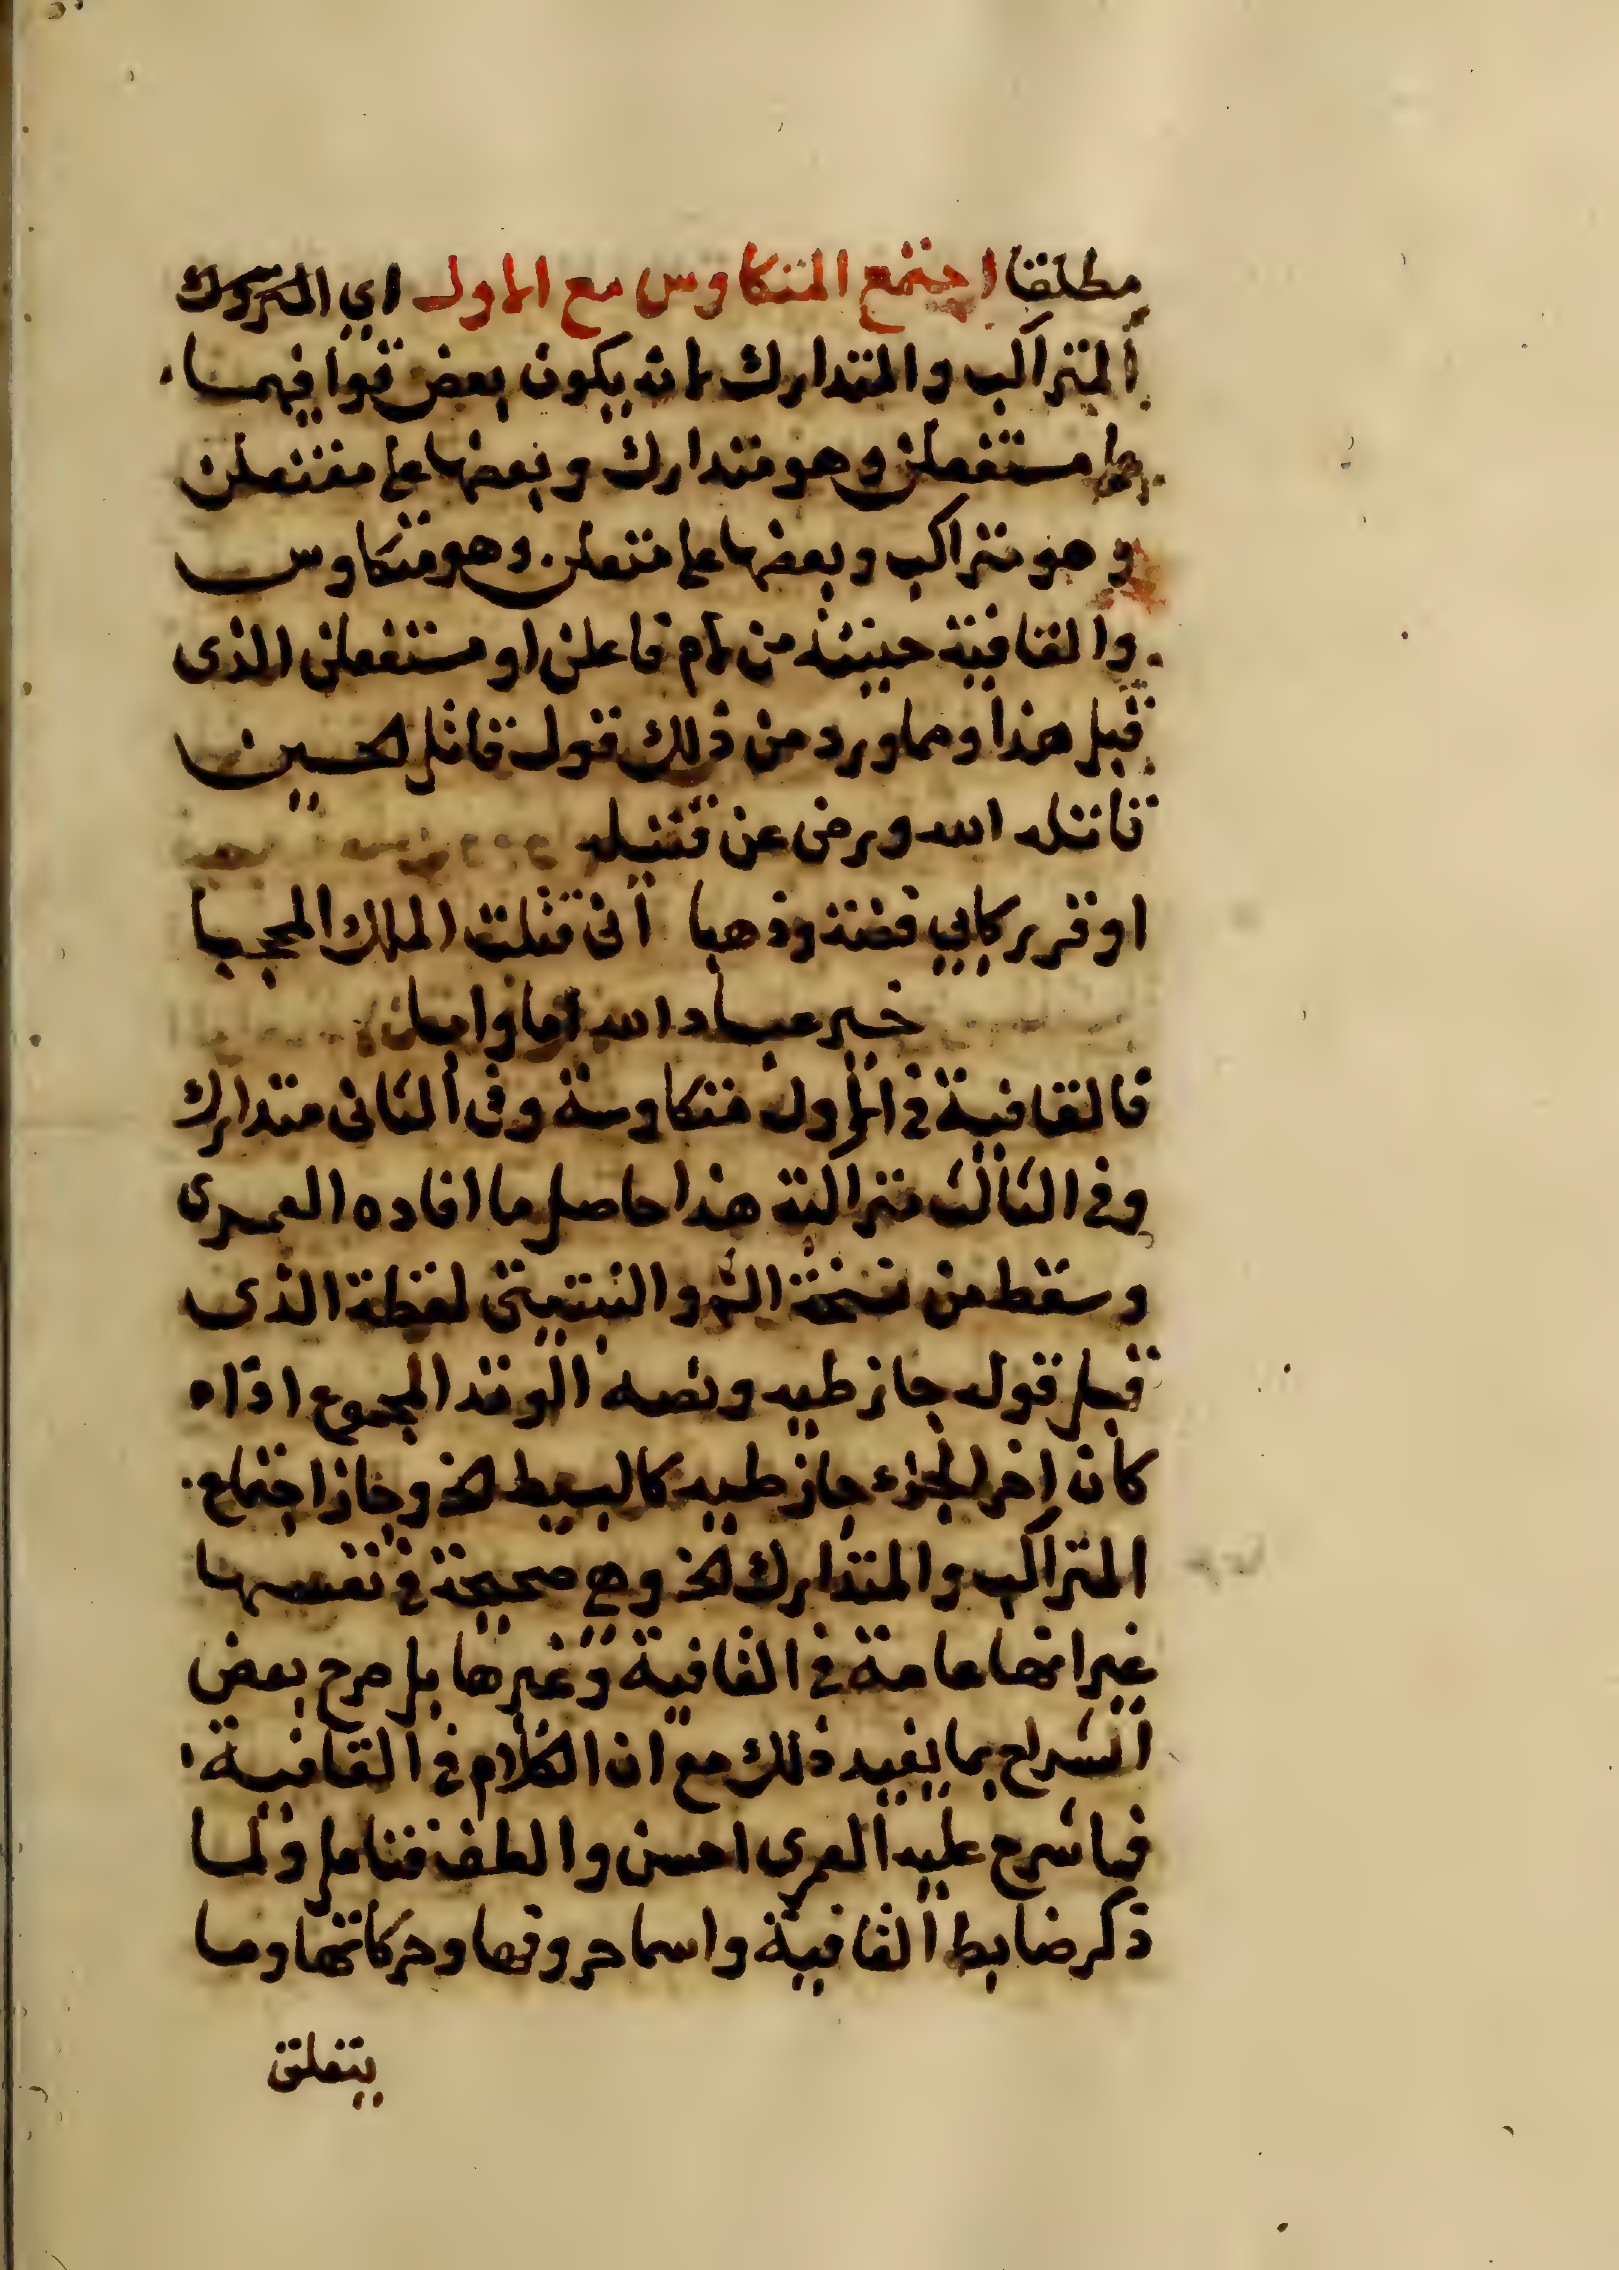 مطلقا اجتمع المتكاوس مع الاول اي المتروك
المتراكب والمتدارك لانه يكون بعض قوافيهما
على مستفعلن وهو متدارك وبعضها على مفتعلن
وهو متراكب وبعضها على متعلن وهو متكاوس
والقافية حينئذ من لام فاعلن او مستفعلن الذى
قبل هذا ومما ورد من ذلك قول قاتل الحسين
قاتله الله ورضى عن قتيله
اوقر ركابي فضة وذهبا انى قتلت الملك المحجبا
خير عباد الله اما وابا
فالقافية في الاول متكاوسة وفى الثانى متدارك
وفى الثالث متراكبة هذا حاصل ما افاده العمرى
وسقط من نسخة الشم والنبتيتى لفظة الذى
قبل قوله جاز طيه ونصه الوتد المجموع اذاه
كان اخر الجزء جاز طيه كالبسيط الخ وجاز اجتماع
المتراكب والمتدارك الخ وهي صحيحة في نفسها
غير انها عامة في القافية وغيرها بل صرح بعض
الشراح بما يفيد ذلك مع ان الكلام في القافية
فما شرح عليه العمرى احسن والطف فتامل ولما
ذكر ضابط القافية واسما حروفها وحركاتها وما
يتعلق